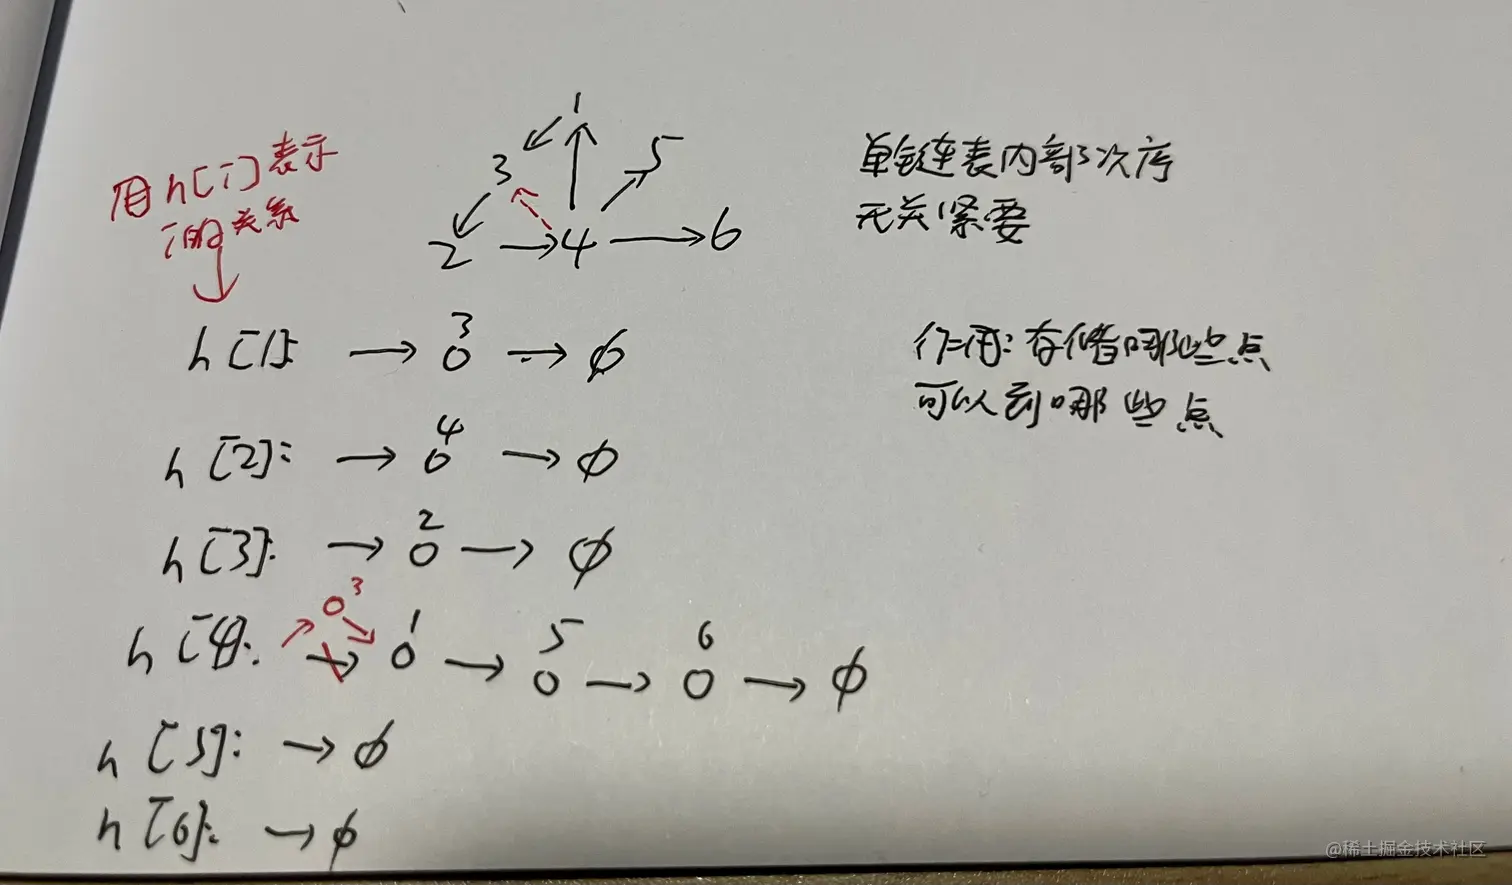 用h[i]表示
i的关系
1
3
5
2 → 4 → 6
单链表内部次序
无关紧要
作用:存储哪些点
可以到哪些点
3
h[1]: → o → ϕ
4
h[2]: → o → ϕ
2
h[3]: → o → ϕ
3
o
1 5 6
h[4]: → o → o → o → ϕ
h[5]: → ϕ
h[6]: → ϕ
@稀土掘金技术社区